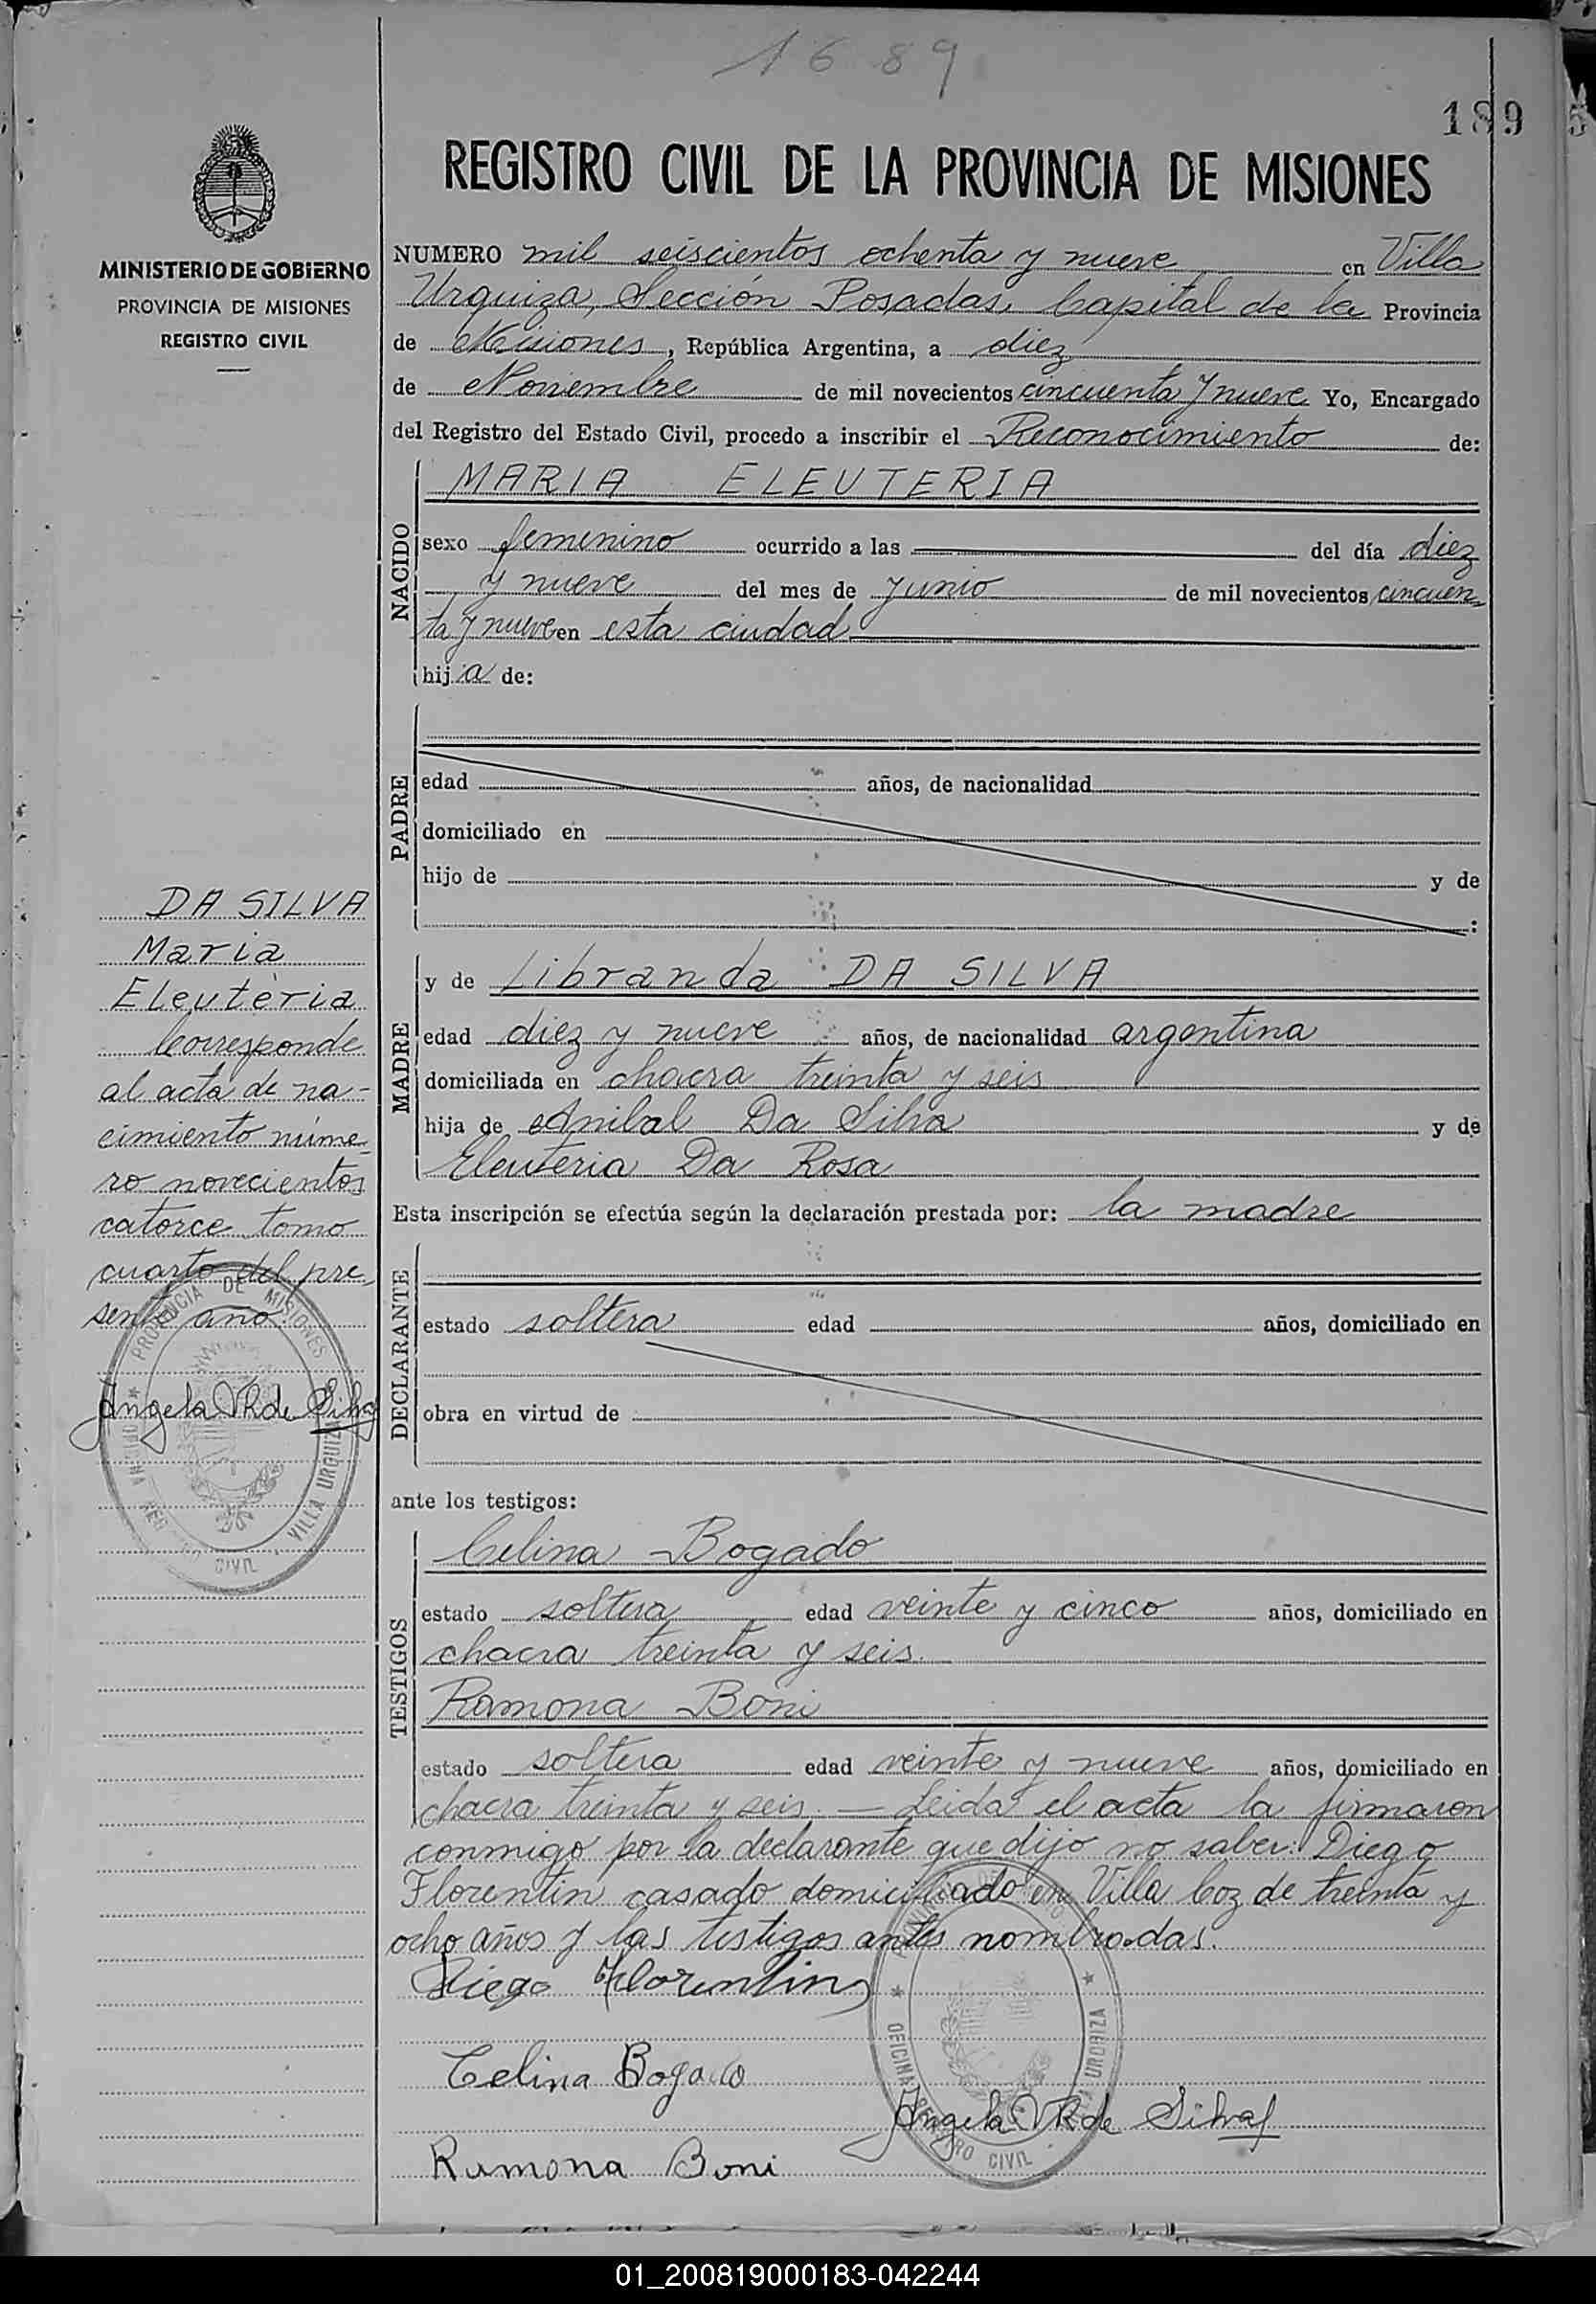 1689
189
REGISTRO CIVIL DE LA PROVINCIA DE MISIONES
MINISTERIO DE GOBIERNO
PROVINCIA DE MISIONES
REGISTRO CIVIL
NUMERO mil seiscientos ochenta y nueve en Villa
Urquiza, Sección Posadas, Capital de la Provincia
de Misiones, República Argentina, a diez
de Noviembre de mil novecientos cincuenta y nueve Yo, Encargado
del Registro del Estado Civil, procedo a inscribir el Reconocimiento de:
NACIDO
MARIA ELEUTERIA
sexo femenino ocurrido a las del día diez
y nueve del mes de Junio de mil novecientos cincuen
ta y nueve en esta ciudad
hija de:
PADRE
edad años, de nacionalidad
domiciliado en
hijo de y de
:
DA SILVA
Maria
Eleutèria
Corresponde
al acta de na-
cimiento núme
ro novecientos
catorce tomo
cuarto del pre
sente año
Angela V R de Silva
PROVINCIA DE MISIONES
OFICINA REGISTRO CIVIL VILLA URQUIZA
MADRE
y de Libranda DA SILVA
edad diez y nueve años, de nacionalidad argentina
domiciliada en chacra treinta y seis
hija de Anibal Da Silva y de
Eleuteria Da Rosa
Esta inscripción se efectúa según la declaración prestada por: la madre
DECLARANTE
estado soltera edad años, domiciliado en
obra en virtud de
ante los testigos:
TESTIGOS
Celina Bogado
estado soltera edad veinte y cinco años, domiciliado en
chacra treinta y seis.
Ramona Boni
estado soltera edad veinte y nueve años, domiciliado en
chacra treinta y seis. — Leida el acta la firmaron
conmigo por la declarante que dijo no saber: Diego
Florentin casado domiciliado en Villa Coz de treinta y
ocho años y las testigos antes nombradas.
Diego Florentin
Celina Bogado
Angela V R de Silva
Ramona Boni
OFICINA REGISTRO CIVIL VILLA URQUIZA
01_200819000183-042244